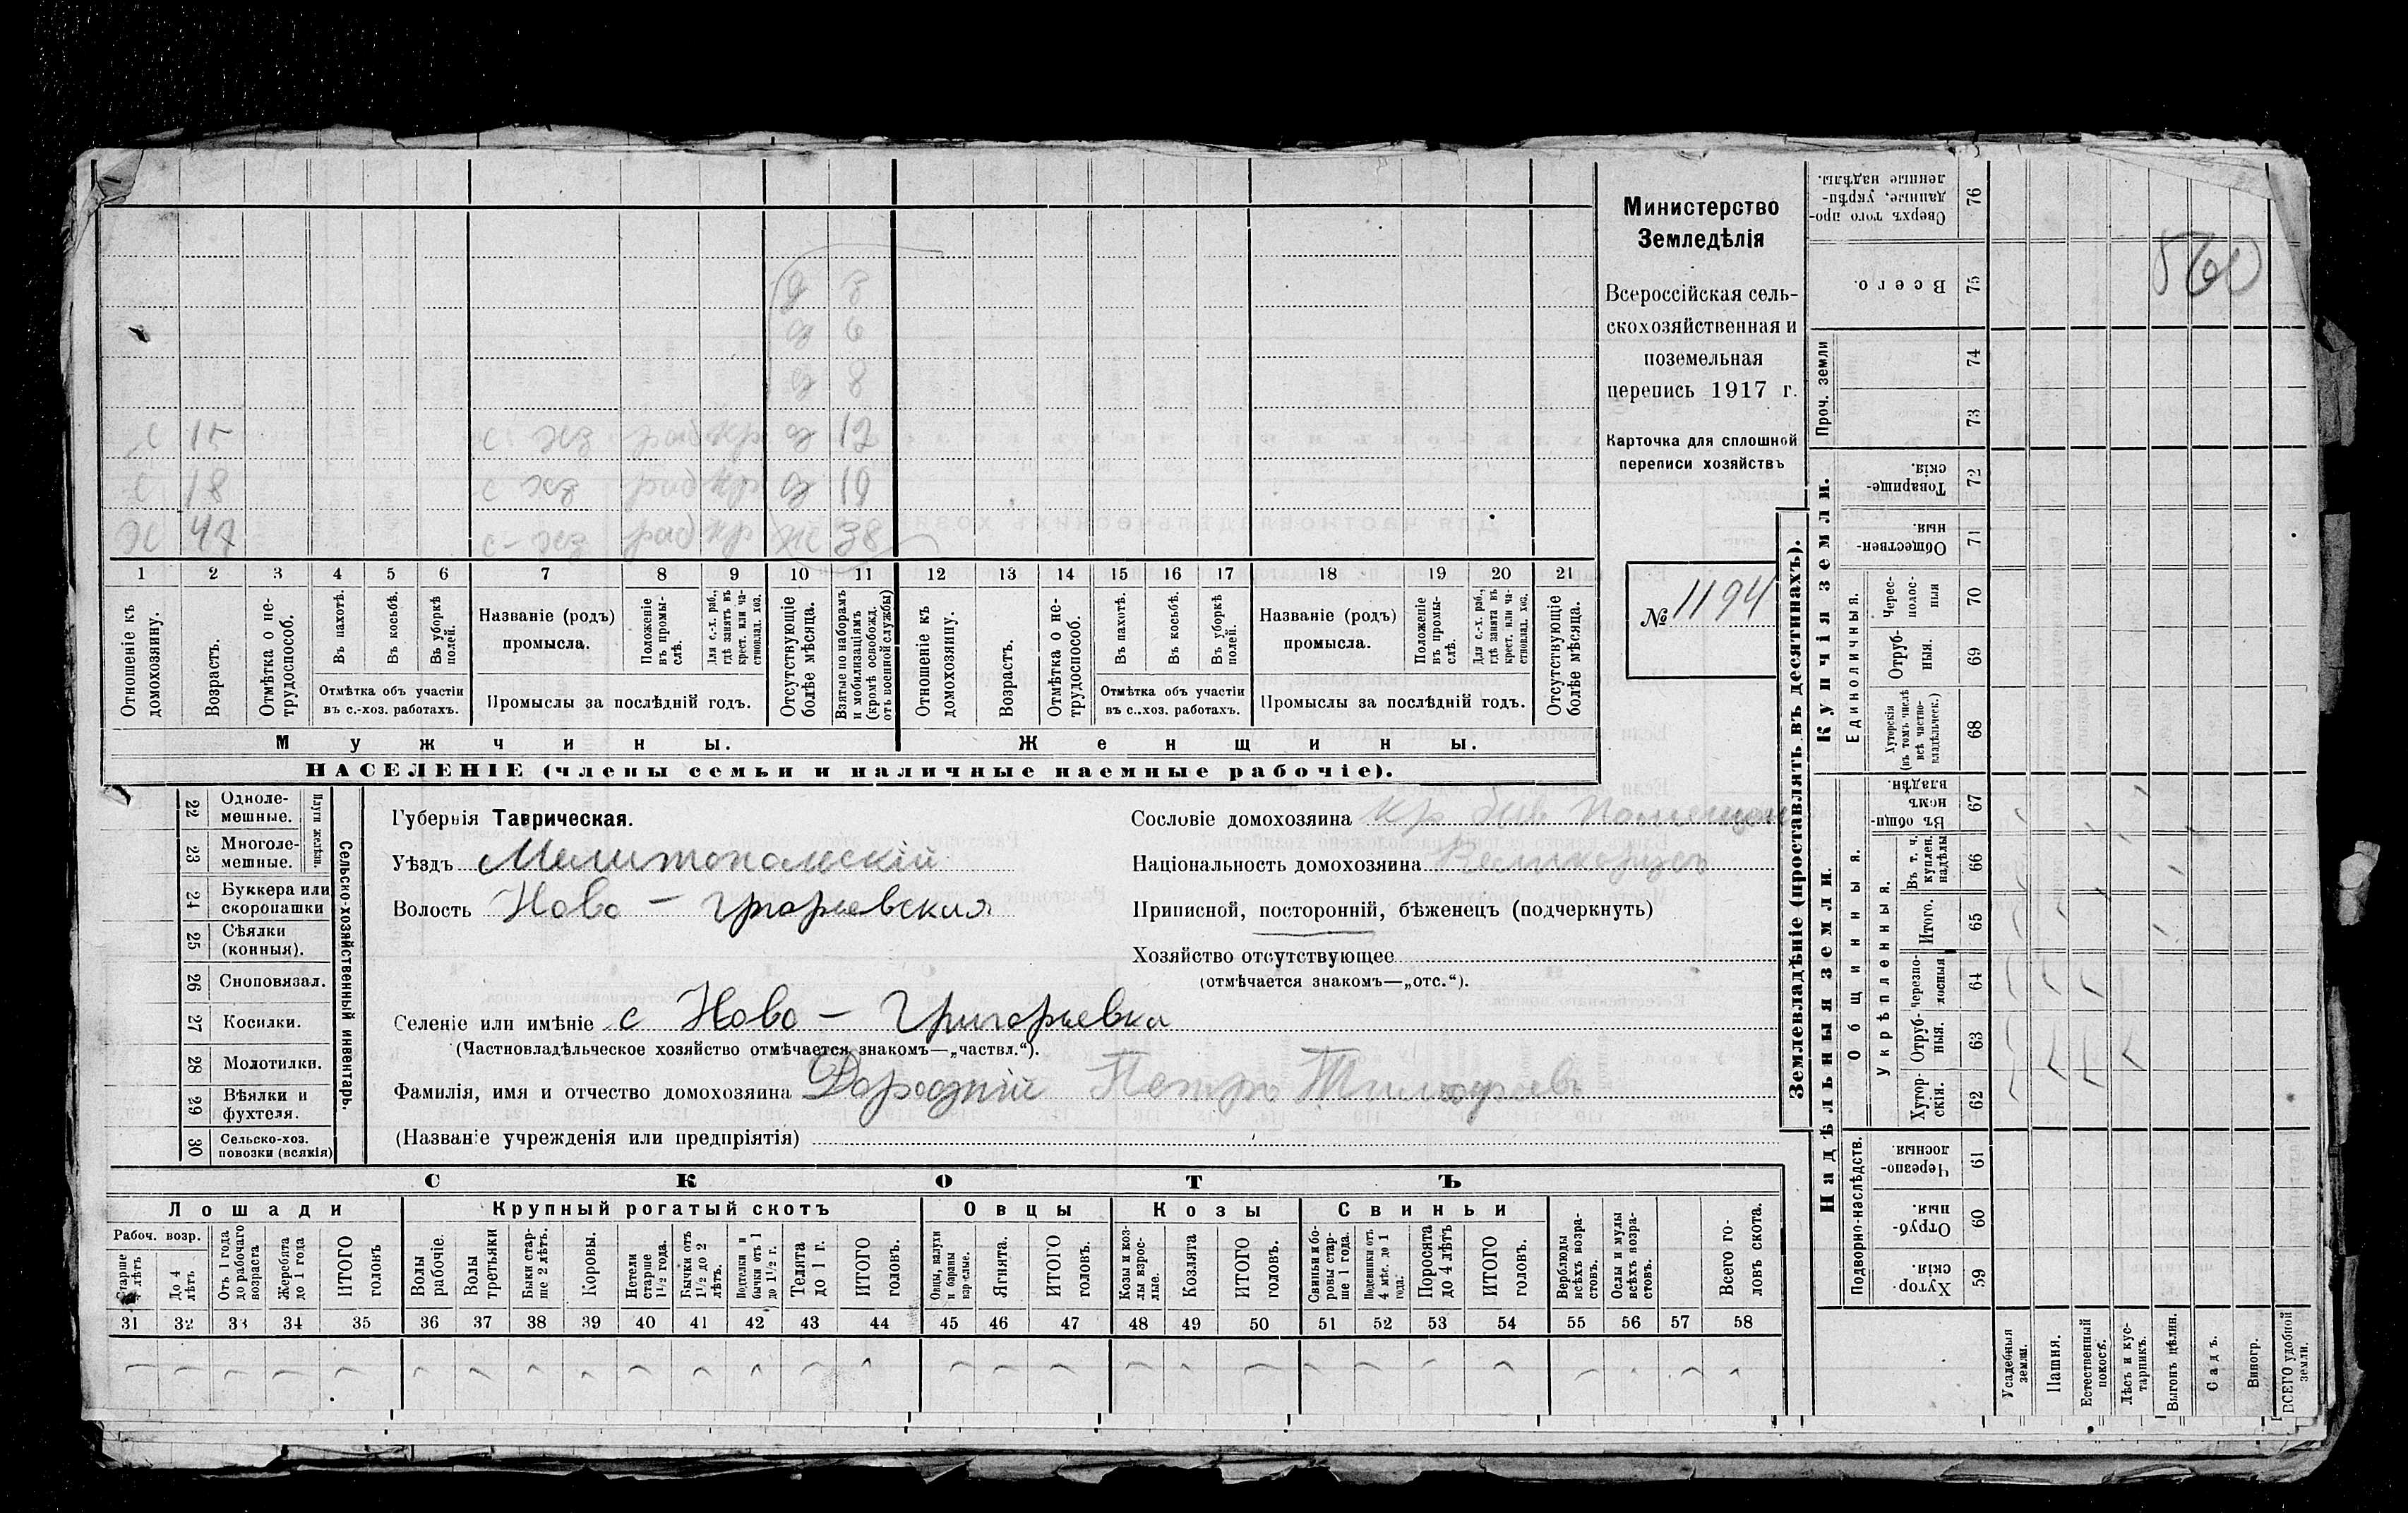 Министерство
Земледѣлія
Всероссійская сель-
скохозяйственная и
поземельная
перепись 1917 г.
Карточка для сплошной
переписи хозяйствъ
№ 1194
560
д 8
д 6
д 8
с 15 с-хз раб кр д 12
с 18 с хз раб кр д 19
х 47 с-хз раб кр ж 38
1 2 3 4 5 6 7 8 9 10 11 12 13 14 15 16 17 18 19 20 21
Отношеніе къ домохозяину.
Возрастъ.
Отмѣтка о не-трудоспособ.
Въ пахотѣ.
Въ косьбѣ.
Въ уборкѣ полей.
Отмѣтка объ участіи въ с.-хоз. работахъ.
Названіе (родъ) промысла.
Положеніе въ промы-слѣ.
Для с.-х. раб., гдѣ занятъ въ крест. или ча-стновлад. хоз.
Промыслы за послѣдній годъ.
Отсутствующіе болѣе мѣсяца.
Взятые по наборамъ и мобилизаціямъ (кромѣ освобожд. отъ военной службы)
Отношеніе къ домохозяину.
Возрастъ.
Отмѣтка о не-трудоспособ.
Въ пахотѣ.
Въ косьбѣ.
Въ уборкѣ полей.
Отмѣтка объ участіи въ с.-хоз. работахъ.
Названіе (родъ) промысла.
Положеніе въ промы-слѣ.
Для с.-х. раб., гдѣ занята въ крест. или ча-стновлад. хоз.
Промыслы за послѣдній годъ.
Отсутствующіе болѣе мѣсяца.
Мужчины. Женщины.
НАСЕЛЕНІЕ (члены семьи и наличные наемные рабочіе).
Сельско-хозяйственный инвентарь.
Плуги желѣзн.
22 Одноле-мешные.
23 Многоле-мешные.
24 Буккера или скоропашки
25 Сѣялки (конныя).
26 Сноповязал.
27 Косилки.
28 Молотилки.
29 Вѣялки и фухтеля.
30 Сельско-хоз. повозки (всякія)
Губернія Таврическая.
Уѣздъ Мелитопольскій
Волость Ново-Григорьевская
Селеніе или имѣніе с Ново-Григорьевка
(Частновладѣльческое хозяйство отмѣчается знакомъ—„частвл.“).
Фамилія, имя и отчество домохозяина Петръ Тимофеев
(Названіе учрежденія или предпріятія)
Сословіе домохозяина кр быв
Національность домохозяина Великорусъ
Приписной, посторонній, бѣженецъ (подчеркнуть)
Хозяйство отсутствующее
(отмѣчается знакомъ—„отс.“).
СКОТЪ
Лошади Крупный рогатый скотъ Овцы Козы Свиньи
Рабоч. возр.
Старше 4 лѣтъ
До 4 лѣтъ
Отъ 1 года до рабочаго возраста
Жеребята до 1 года
ИТОГО головъ
Волы рабочіе.
Волы третьяки
Быки стар-ше 2 лѣтъ.
Коровы.
Нетели старше 1½ года.
Бычки отъ 1½ до 2 лѣтъ.
Подтелки и бычки отъ 1 до 1½ г.
Телята до 1 г.
ИТОГО головъ.
Овцы, валухи и бараны взрослые.
Ягнята.
ИТОГО головъ.
Козы и коз-лы взрос-лые.
Козлята
ИТОГО головъ.
Свиньи и бо-ровы стар-ше 1 года.
Подсвинки отъ 4 мѣс. до 1 года.
Поросята до 4 лѣтъ
ИТОГО головъ.
Верблюды всѣхъ возра-стовъ.
Ослы и мулы всѣхъ возра-стовъ.
Всего го-ловъ скота.
31 32 33 34 35 36 37 38 39 40 41 42 43 44 45 46 47 48 49 50 51 52 53 54 55 56 57 58
Землевладѣніе (проставлять въ десятинахъ).
Надѣльныя земли. Купчія земли.
Подворно-наслѣдств.
Общинныя.
Укрѣпленныя.
Единоличныя.
Проч. земли
59 Хутор-скія.
60 Отруб-ныя.
61 Черезпо-лосныя
62 Хутор-скія.
63 Отруб-ныя.
64 Черезпо-лосныя
65 Итого.
66 Въ т. ч. куплен. надѣлы
67 Въ общи-номъ владѣн.
68 Хуторскія (въ томъ числѣ всѣ частно-владѣльческ.)
69 Отруб-ныя.
70 Черес-полос-ныя
71 Обществен-ныя
72 Товарище-скія.
73
74
75 Всего.
76 Сверхъ того про-данные, укрѣп-ленные надѣлы.
Усадебныя земли.
Пашня.
Естественный покосъ.
Лѣсъ и кус-тарникъ.
Выгонъ цѣлин.
Садъ.
Виногр.
ВСЕГО удобной земли.